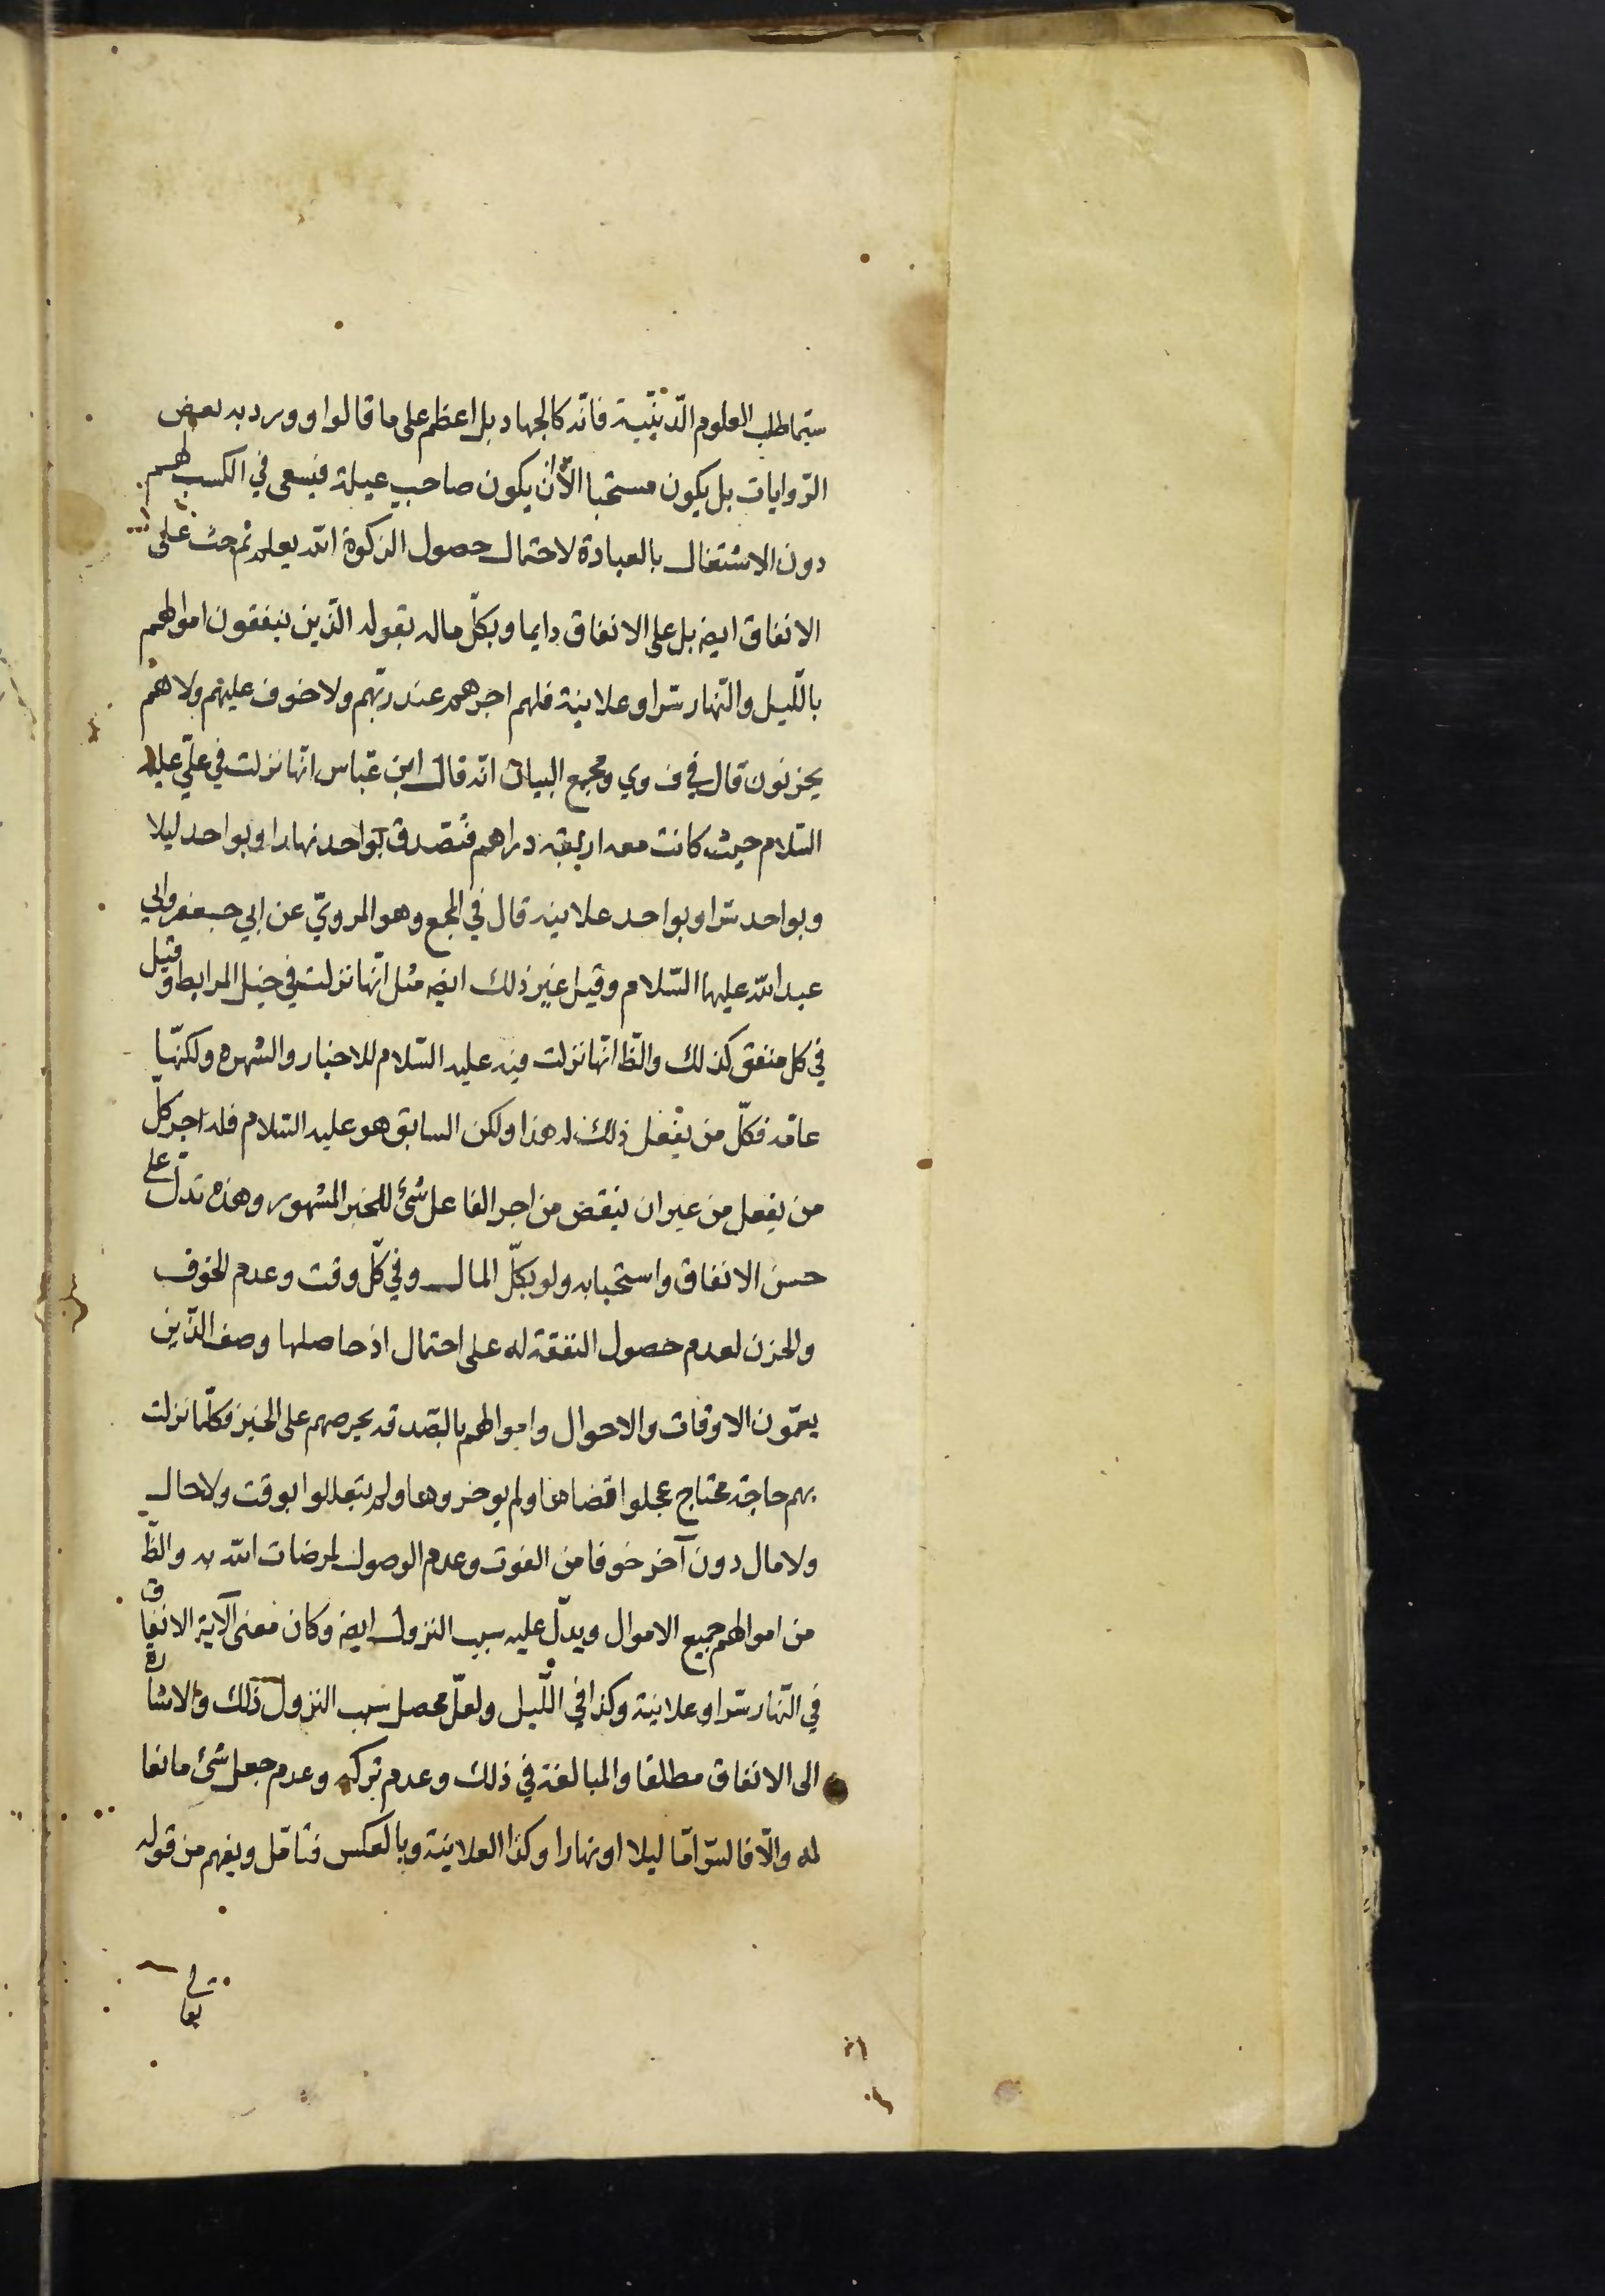 سيّما طلب العلوم الدّينيّة فانّه كالجهاد بل اعظم على ما قالوا و ورد به بعض
الرّوايات بل يكون مستحبا الّا ان يكون صاحب عيلة فيسعى في الكسب لهم
دون الاشتغال بالعبادة لاحتمال حصول الزكوة الله يعلم ثم حث على
الانفاق ايضا بل على الانفاق دايما وبكلّ ماله بقوله الّذين ينفقون اموالهم
بالّليل والنّهار سرّا وعلانية فلهم اجرهم عند ربّهم ولا خوف عليهم ولا هم
يحزنون قال في ف وي ومجمع البيان انّه قال ابن عبّاس انّها نزلت في عليّ عليه
السّلام حيث كانت معه اربعة دراهم فتصدق بواحد نهارا وبواحد ليلا
وبواحد سرّا وبواحد علانية قال في المجمع وهو المرويّ عن ابي جعفر وابي
عبد الله عليهما السّلام وقيل غير ذلك ايضا مثل انّها نزلت في خيل المرابط وقيل
في كل منفق كذلك والظّ انّها نزلت فيه عليه السّلام للاخبار والشهره ولكنّها
عامّه فكلّ من يفعل ذلك له هذا ولكن السابق هو عليه السّلام فله اجر كلّ
من يفعل من غير ان ينقض من اجر الفاعل شئ للخبر المشهور وهذه تدلّ على
حسن الانفاق واستحبابه ولو بكلّ المال وفي كلّ وقت وعدم الخوف
والحزن لعدم حصول النفقة له على احتمال اذ حاصلها وصف الّذين
يعمّون الاوقات والاحوال واموالهم بالصّدقه يحرصهم على الخير فكلّما نزلت
بهم حاجة محتاج عجلوا قضاها ولم يوخروها ولم يتعللوا بوقت ولا حال
ولا مال دون آخر خوفا من الفوت وعدم الوصول لمرضات الله به والظّ
من اموالهم جميع الاموال ويدلّ عليه سبب النزول ايضا وكان معنى الآية الانفاق
في النّهار سرّا وعلانية وكذا في اللّيل ولعلّ محصل سبب النزول ذلك والاشارة
الى الانفاق مطلقا والمبالغة في ذلك وعدم تركه وعدم جعل شئ مانعا
له والّا فالسّر امّا ليلا او نهارا وكذا العلانية وبالعكس فتامّل ويفهم من قوله
تعالى